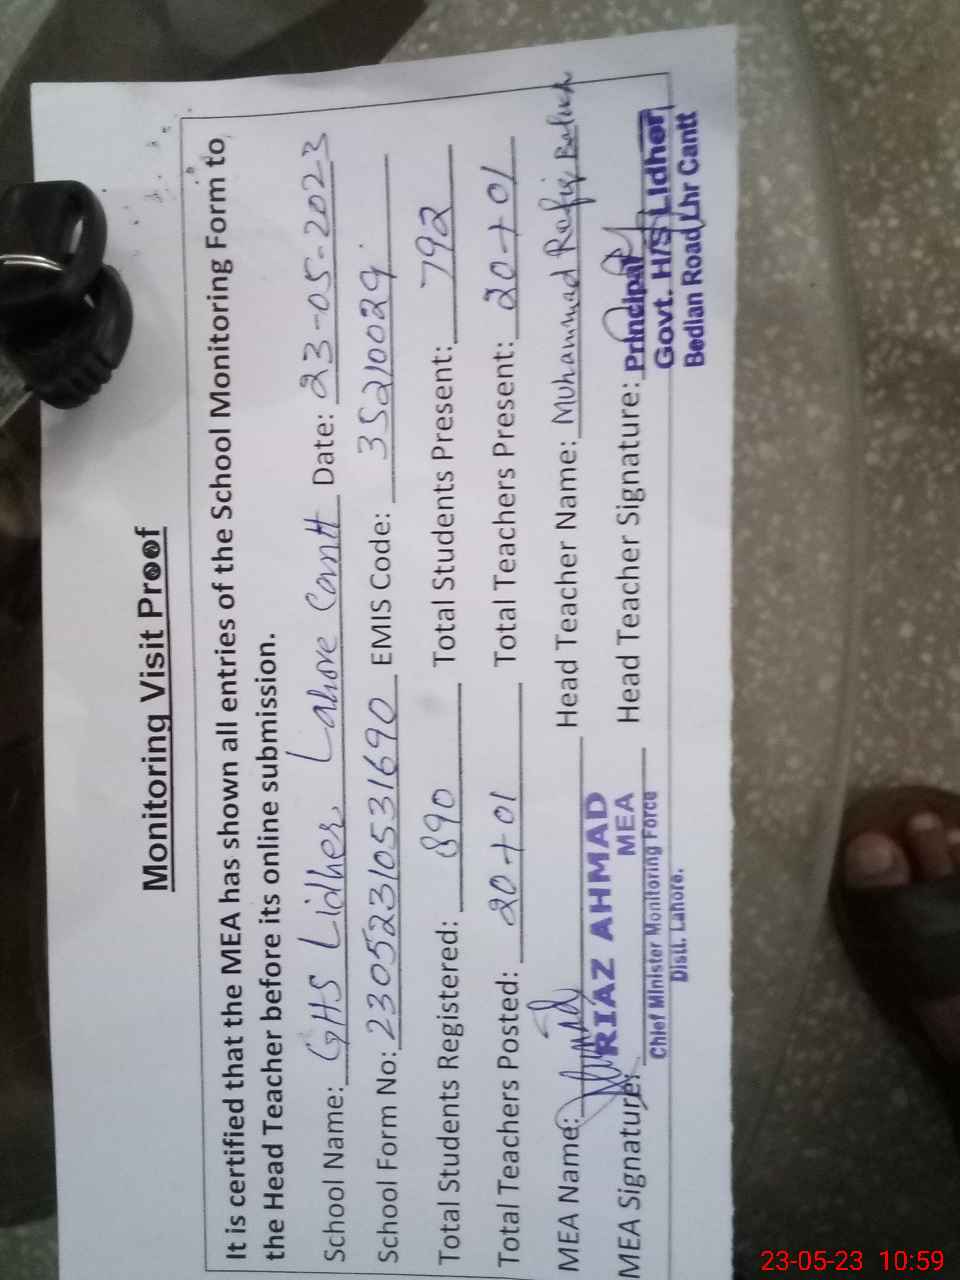 Monitoring Visit Proof
It is certified that the MEA has shown all entries of the School Monitoring Form to
the Head Teacher before its online submission.
School Name: GHS Lidher, Lahore Cantt Date: 23-05-2023
School Form No: 23052310531690 EMIS Code: 35210029
Total Students Registered: 890 Total Students Present: 792
Total Teachers Posted: 20+01 Total Teachers Present: 20+01
MEA Name: Head Teacher Name: Muhammad Rafiq Baluch
RIAZ AHMAD
MEA
MEA Signature: Head Teacher Signature: Principal
Chief Minister Monitoring Force
Distt. Lahore.
Govt. H/S Lidher
Bedian Road Lhr Cantt
23-05-23 10:59